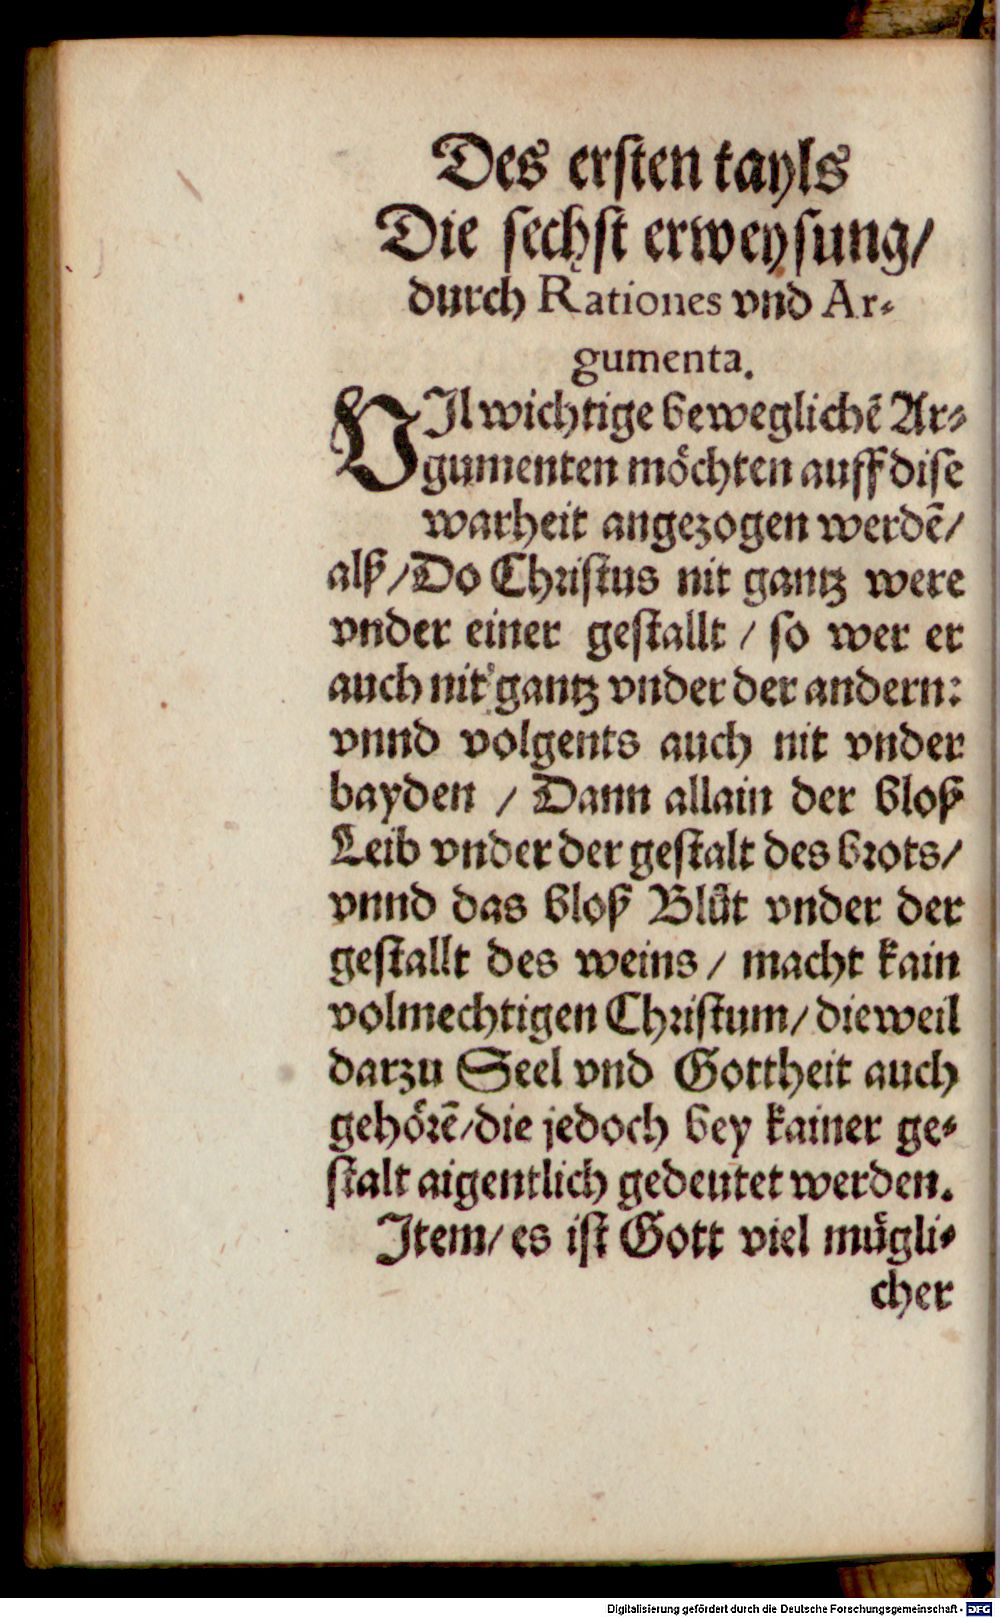 Des ersten tayls
Die sechst erweysung/
durch Rationes vnd Ar-
gumenta.
VIl wichtige beweglichẽ Ar-
gumenten möchten auff dise
warheit angezogen werdẽ/
alß/ Do Christus nit gantz were
vnder einer gestallt / so wer er
auch nit gantz vnder der andern:
vnnd volgents auch nit vnder
bayden / Dann allain der bloß
Leib vnder der gestalt des brots/
vnnd das bloß Blůt vnder der
gestallt des weins / macht kain
volmechtigen Christum/ dieweil
darzu Seel vnd Gottheit auch
gehörẽ/ die jedoch bey kainer ge-
stalt aigentlich gedeutet werden.
Jtem/ es ist Gott viel mügli-
cher
Digitalisierung gefördert durch die Deutsche Forschungsgemeinschaft - DFG